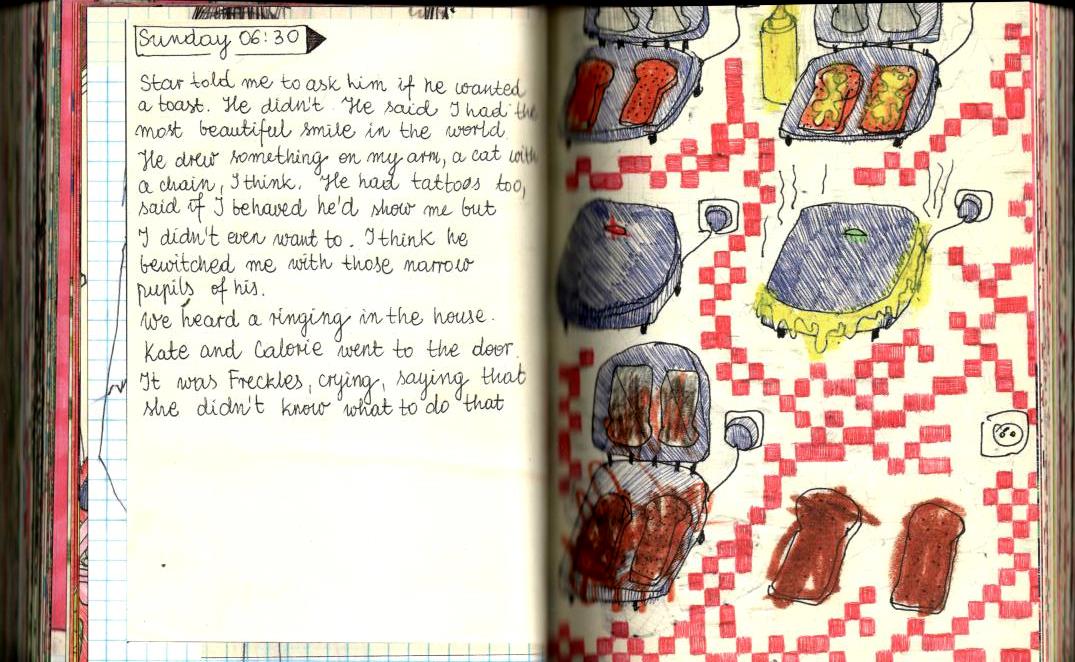 Sunday 06:30
Star told me to ask him if he wanted
a toast. He didn't. He said I had the
most beautiful smile in the world.
He drew something on my arm, a cat with
a chain, I think. He had tattoos too,
said if I behaved he'd show me but
I didn't even want to. I think he
bewitched me with those narrow
pupils of his.
We heard a ringing in the house.
Kate and Calorie went to the door.
It was Freckles, crying, saying that
she didn't know what to do that